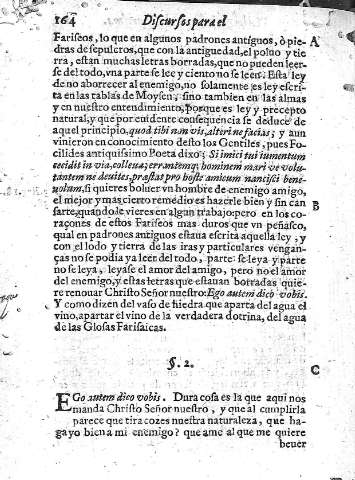 164 Discursos para el
Fariseos, lo que en algunos padrones antiguos, ò pie- A
dras de sepulcros, que con la antiguedad, el poluo y tie
rra, estan muchas letras borradas, que no pueden leer-
se del todo, vna parte se lee y ciento no se leen. Esta ley
de no aborrecer al enemigo, no solamente es ley escri
ta en las tablas de Moysen, sino tambien en las almas
y en nuestro entendimiento, porque es ley y precepto
natural, y que por euidente consequencia se deduce de
aquel principio, quod tibi non vis, alteri ne facias; y aun
vinieron en conocimiento desto los Gentiles, pues Fo-
cilides antiquissimo Poeta dixo: Si inimici tui iumentum
ceciderit in via, colleua; errantemq; hominem mari ve volu-
tantem ne deuites, præstat pro hoste amicum nancisci bene
uolum, si quieres boluer vn hombre de enemigo amigo,
el mejor y mas cierto remedio es hazerle bien y sin can
sarte, quando le vieres en algun trabajo: pero en los co- B
raçones de estos Fariseos mas duros que vn peñasco,
qual en padrones antiguos estaua escrita aquella ley, y
con el lodo y tierra de las iras y particulares vengan-
ças no se podia ya leer del todo, parte se leya y parte
no se leya, leyase el amor del amigo, pero no el amor
del enemigo, y estas letras que estauan borradas quie-
re renouar Christo Señor nuestro: Ego autem dico vobis.
Y como dizen del vaso de hiedra que aparta del agua el
vino, apartar el vino de la verdadera dotrina, del agua
de las Glosas Farisaicas.
§. 2. C
Ego autem dico vobis. Dura cosa es la que aqui nos
manda Christo Señor nuestro, y que al cumplirla
parece que tira cozes nuestra naturaleza, que ha-
ga yo bien a mi enemigo? que ame al que me quiere
beuer